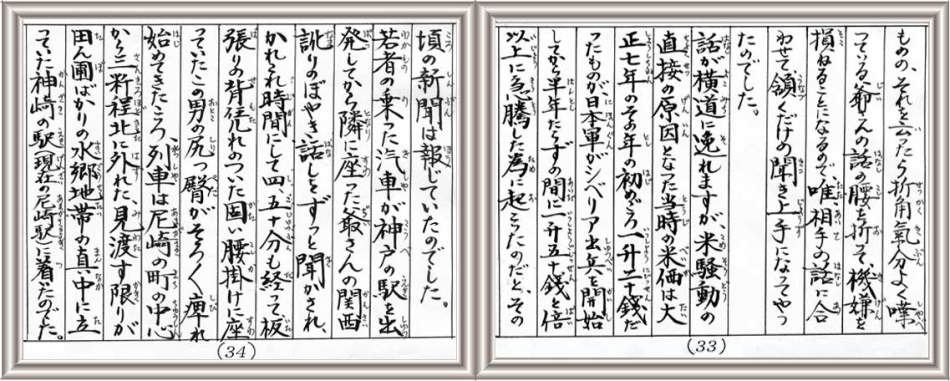 ものの、それを云ったら折角氣分よく喋
っている爺さんの話の腰を折って、機嫌を
損ねることになるので、唯相手の話に合
わせて頷くだけの聞き上手になってやっ
たのでした。
話が横道に逸れますが、米騒動の
直接の原因となった当時の米価は大
正七年のその年の初めごろ、一升二十錢だ
ったものが、日本軍がシベリア出兵を開始
してから半年たらずの間に一升五十銭と倍
以上に急騰した為に起こったのだと、その
(33)
頃の新聞は報じていたのでした。
若者の乗った汽車が神戸の駅を出
発してから隣に座った爺さんの関西
訛りのぼやき話しをずっと聞かされ、
かれこれ時間にして四五十分も経って板
張りの背凭れのついた固い腰掛けに座
っていたこの男の尻っ臀がそろそろ痺れ
始めてきたころ、列車は尼崎の町の中心
から三粁程北に外れた、見渡す限りが
田ん圃ばかりの水郷地帯の真い中に立
っていた神崎の駅(現在の尼崎駅)に着いたのでした。
(34)